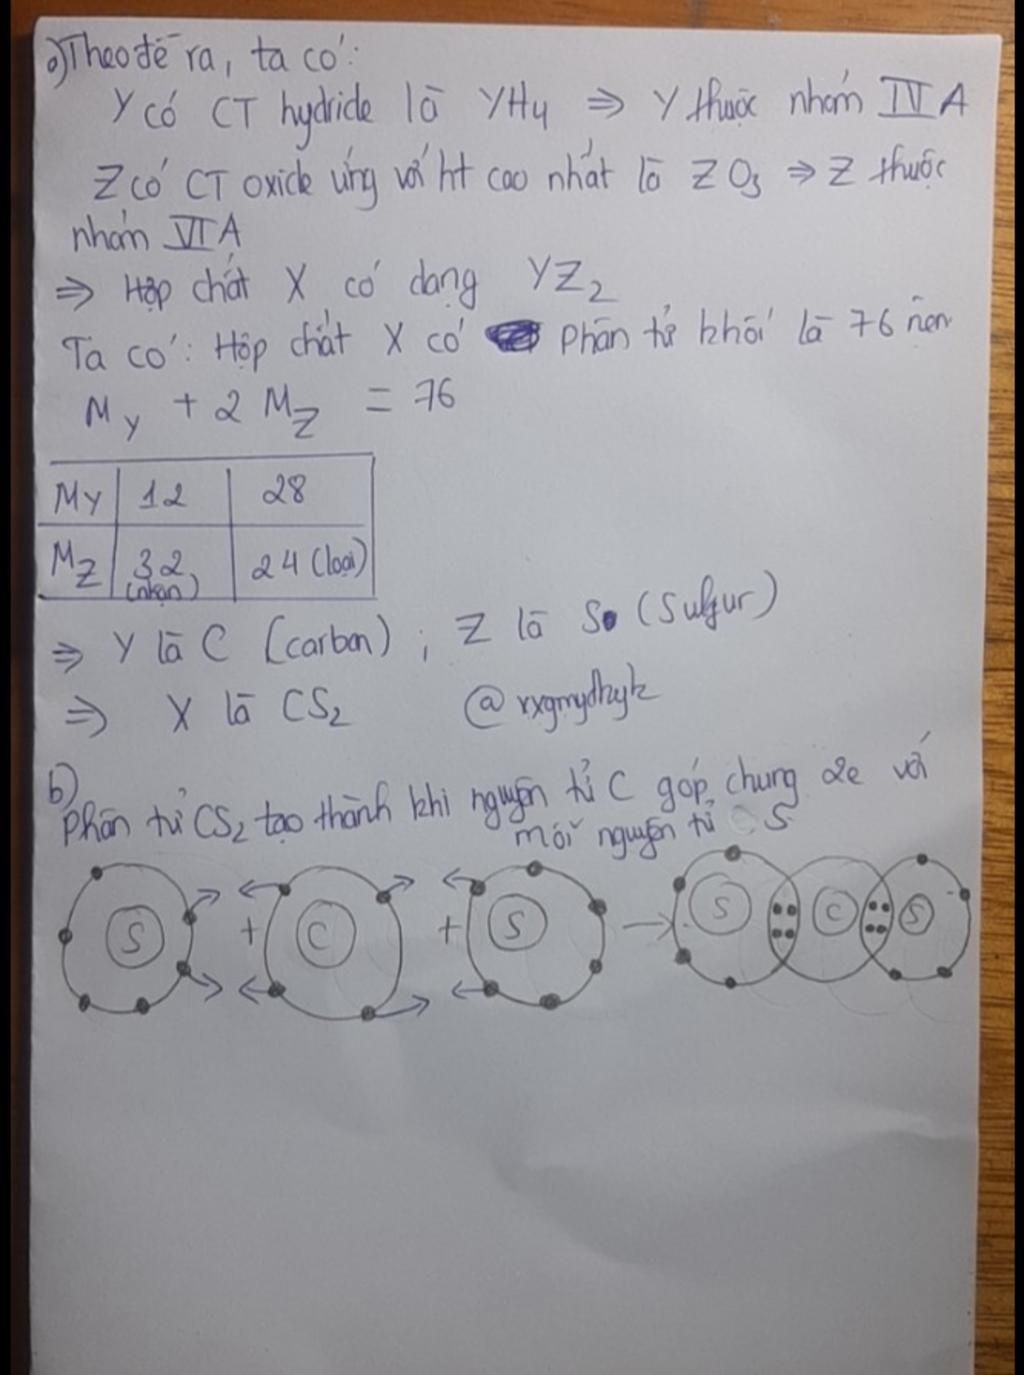 a) Theo đề ra, ta có:
Y có CT hydride là YH4 ⇒ Y thuộc nhóm IV A
Z có CT oxide ứng với ht cao nhất là ZO3 ⇒ Z thuộc
nhóm VI A
⇒ Hợp chất X có dạng YZ2
Ta có: Hợp chất X có phân tử khối là 76 nên
MY + 2 MZ = 76
MY | 12 | 28
MZ | 32 (nhận) | 24 (loại)
⇒ Y là C (carbon) ; Z là S (Sulfur)
⇒ X là CS2 @rxgmydhyk
b)
Phân tử CS2 tạo thành khi nguyên tử C góp chung 2e với
mỗi nguyên tử S
S + C + S → S C S